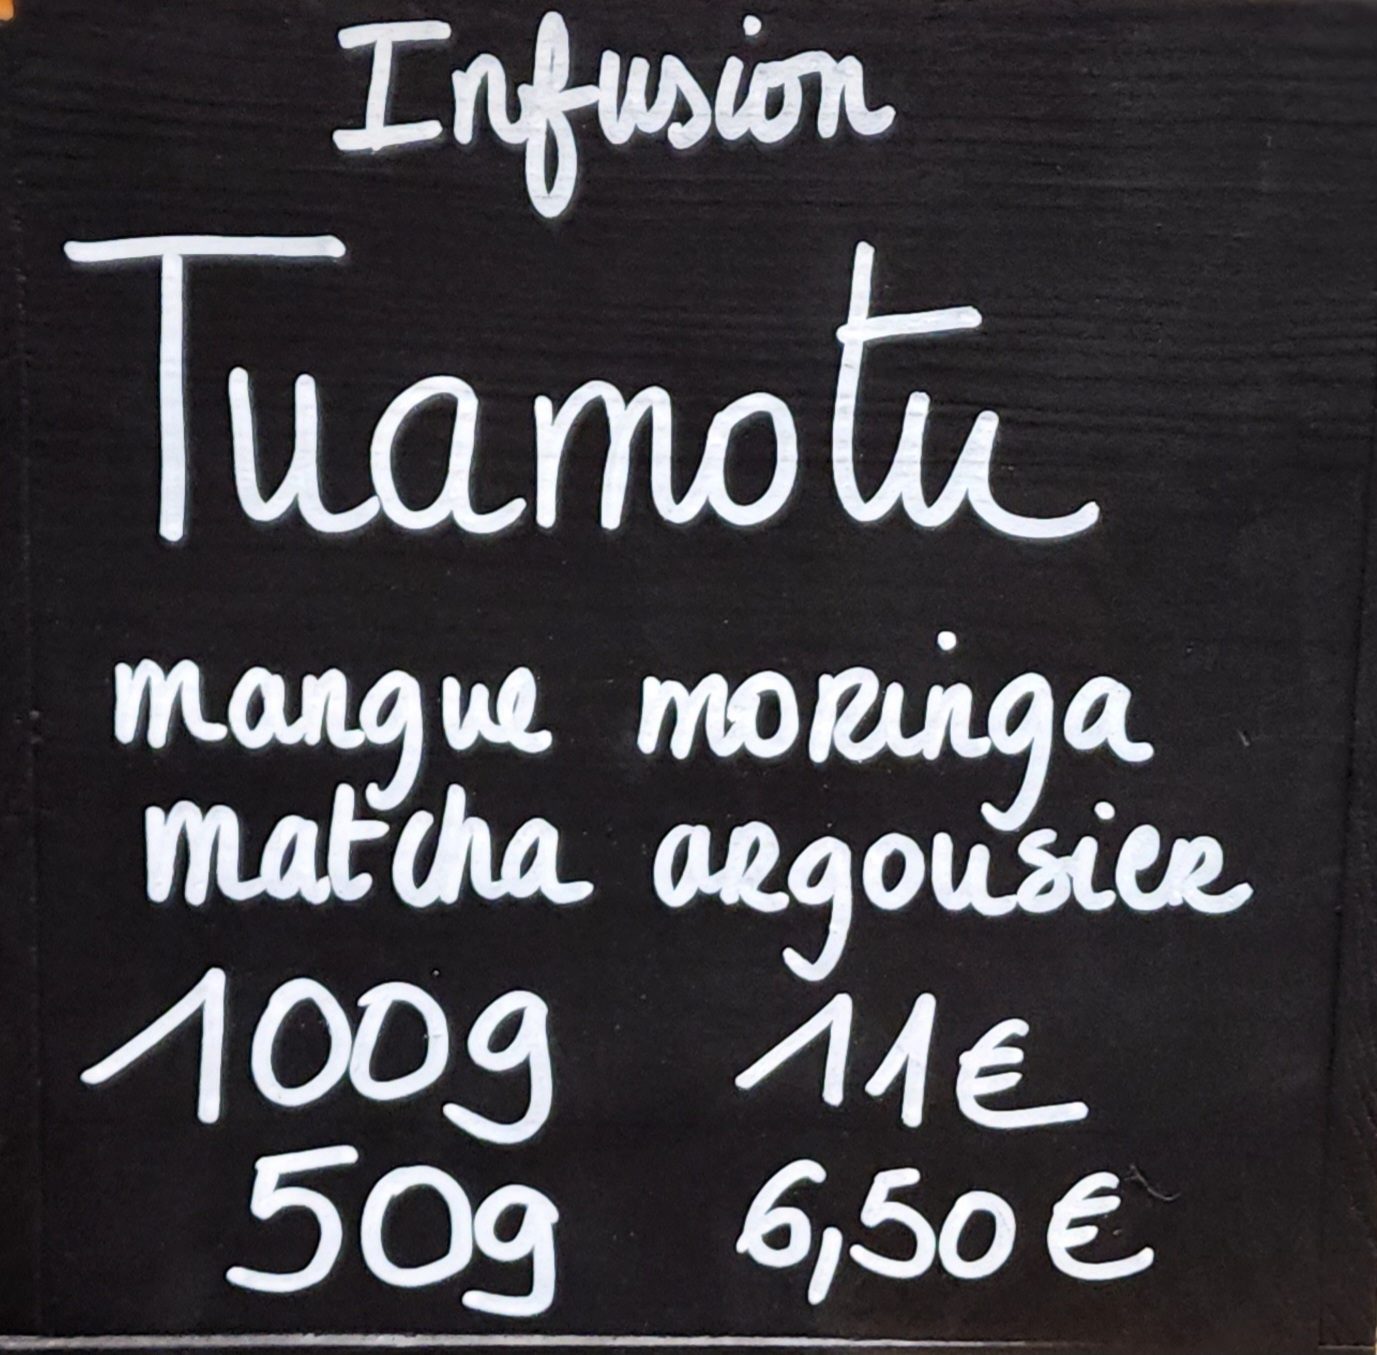 Infusion
Tuamotu
mangue moringa
matcha argousier
100g 11€
50g 6,50€